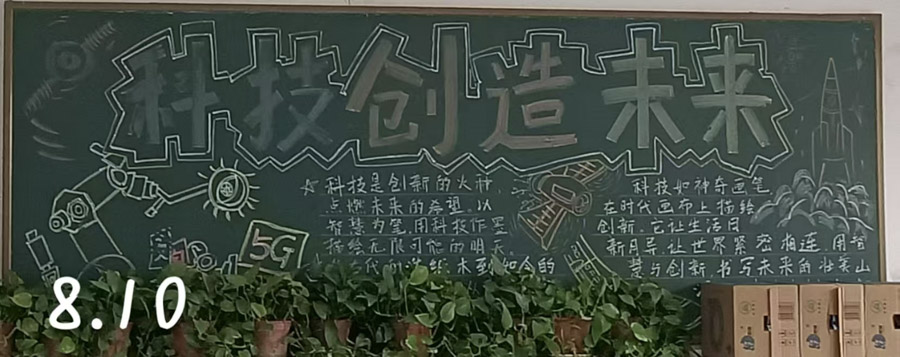 科技创造未来
☆科技是创新的火种,
点燃未来的希望。以
智慧为笔,用科技作墨
描绘无限可能的明天。
未到如今的
科技如神奇画笔
在时代画布上描绘
创新。它让生活日
新月异,让世界紧密相连。用智
慧与创新书写未来的壮美山
5G
8.10